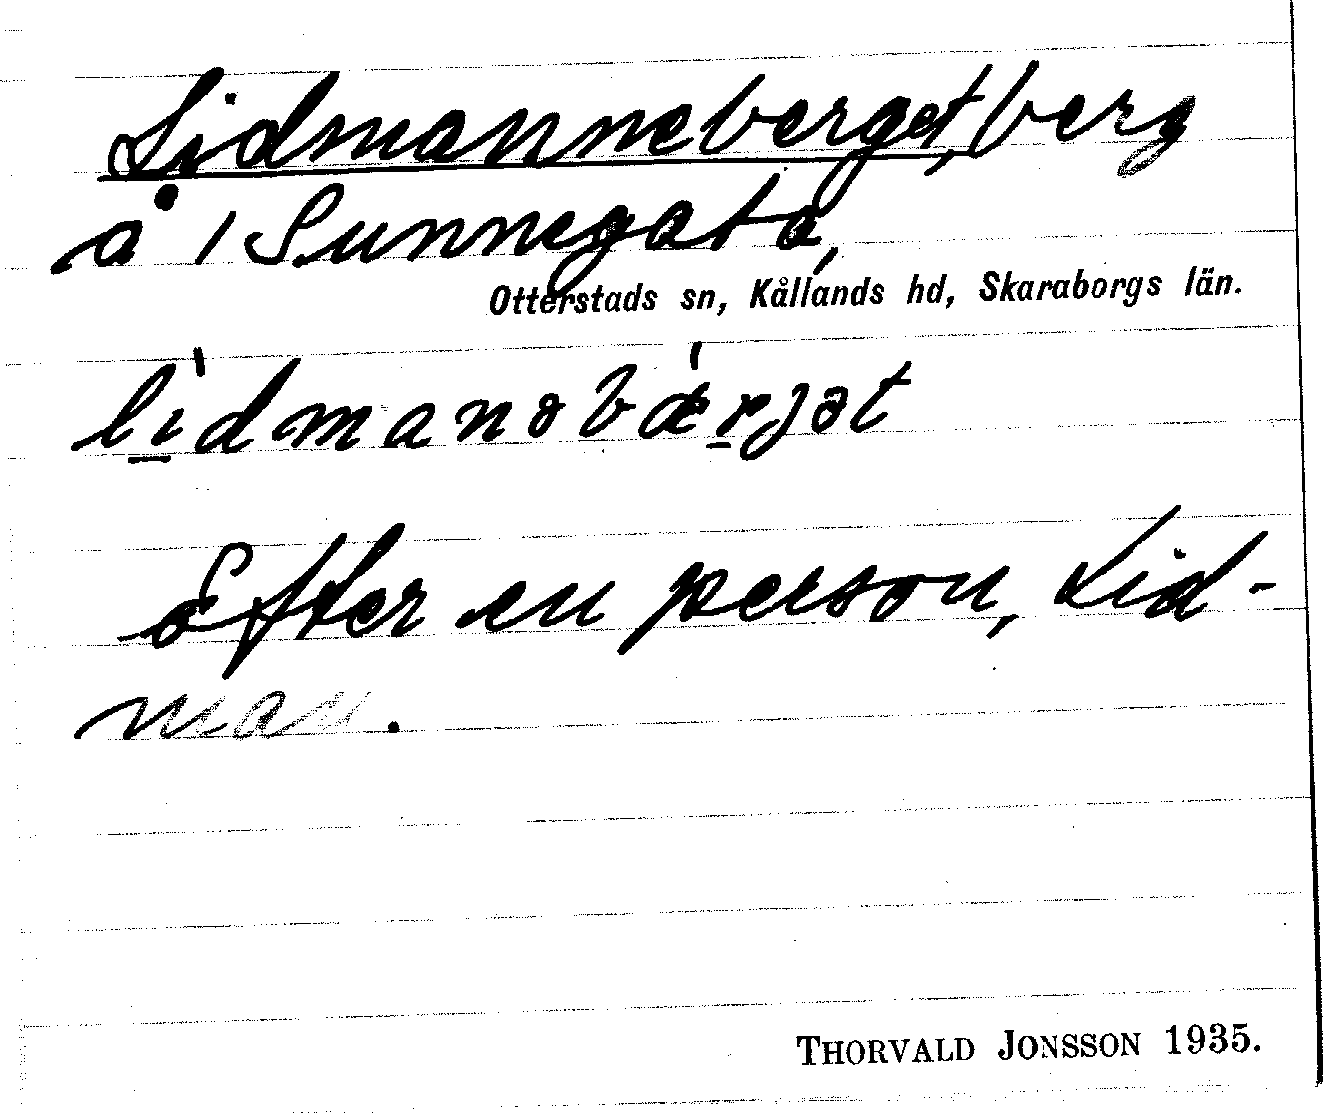 Lidmanneberget, berg
å 1 Sunnegata,
Otterstads sn, Kållands hd, Skaraborgs län.
lìdmanəbǽrjət
Efter en person, Lid-
man.
THORVALD JONSSON 1935.